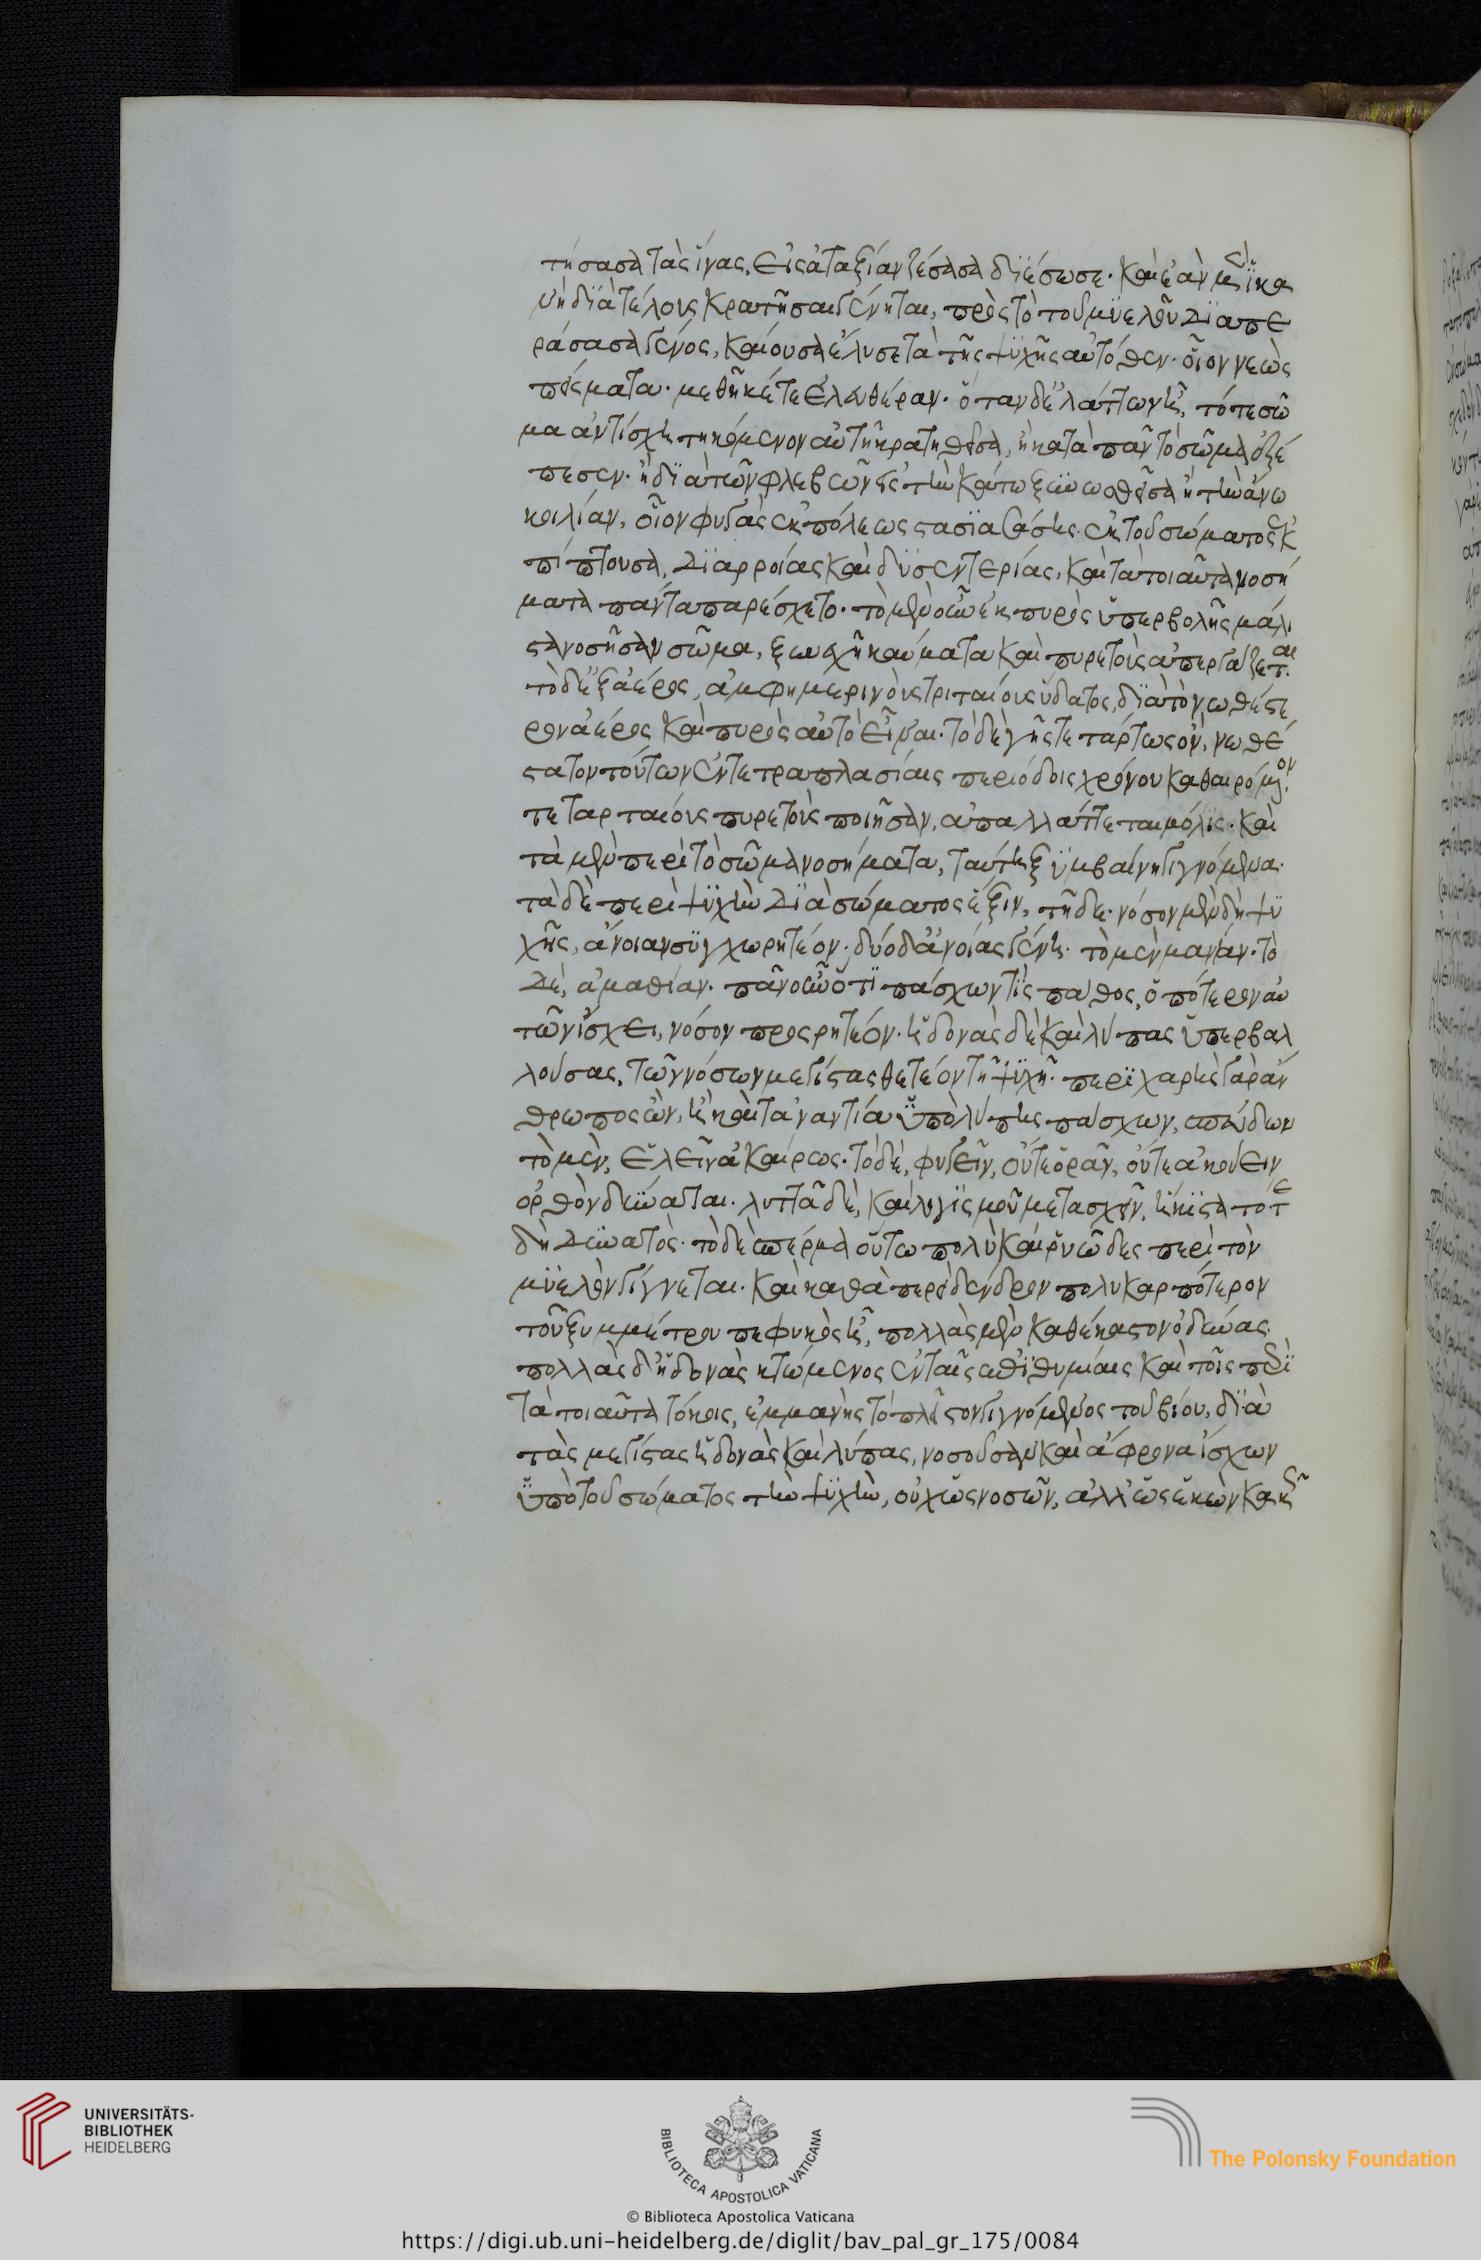 τήσασα τὰς ἶνας, εἰς ἀταξίαν ζέσασα διέσωσε· καὶ ἐὰν μὲν ἱκα
νὴ διὰ τέλους κρατῆσαι γένηται, πρὸς τὸ τοῦ μυελοῦ διαπε
ράσασα γένος, καίουσα ἔλυσε τὰ τῆς ψυχῆς αὐτόθεν. οἷον νεὼς
πείσματα. μεθῆκέ τε ἐλευθέραν. ὅταν δὲ ἐλάττων ᾖ, τό τε σῶ
μα ἀντίσχῃ τηκόμενον αὐτὴ κρατηθεῖσα, ἢ κατὰ πᾶν τὸ σῶμα ἐξέ
πεσεν. ἢ διὰ τῶν φλεβῶν εἰς τὴν κάτω ξυνωσθεῖσα ἢ τὴν ἄνω
κοιλίαν, οἷον φυγὰς ἐκ πόλεως στασιασάσης. ἐκ τοῦ σώματος ἐκ
πίπτουσα, διαρροίας καὶ δυσεντερίας, καὶ τὰ τοιαῦτα νοσή
ματα πάντα παρέσχετο. τὸ μὲν οὖν ἐκ πυρὸς ὑπερβολῆς μάλι
στα νοσῆσαν σῶμα, ξυνεχῆ καύματα καὶ πυρετοὺς ἀπεργάζεται.
τὸ δὲ ἐξ ἀέρος, ἀμφημερινοὺς τριταίους ὕδατος, διὰ τὸ νωθέστε
ρον ἀέρος καὶ πυρὸς αὐτὸ εἶναι. τὸ δὲ γῆς τετάρτως ὂν, νωθέ
στατον τούτων ἐν τετραπλασίαις περιόδοις χρόνου καθαιρόμενον.
τεταρταίους πυρετοὺς ποιῆσαν, ἀπαλλάττεται μόλις. καὶ
τὰ μὲν περὶ τὸ σῶμα νοσήματα, ταύτῃ ξυμβαίνει γιγνόμενα.
τὰ δὲ περὶ ψυχὴν διὰ σώματος ἕξιν, τῇδε. νόσον μὲν δὴ ψυ
χῆς, ἄνοιαν συγχωρητέον. δύο δ' ἀνοίας γένη. τὸ μὲν μανίαν. τὸ
δὲ, ἀμαθίαν. πᾶν οὖν ὅτι πάσχων τὶς πάθος, ὁπότερον αὐ
τῶν ἴσχει, νόσον προσρητέον. ἡδονὰς δὲ καὶ λύπας ὑπερβαλ
λούσας, τῶν νόσων μεγίστας θετέον τῇ ψυχῇ. περιχαρὴς γὰρ ἄν
θρωπος ὢν, ἢ καὶ τἀναντία ὑπὸ λύπης πάσχων, σπεύδων
τὸ μὲν, ἑλεῖν ἀκαίρως. τὸ δὲ, φυγεῖν, οὔτε ὁρᾶν, οὔτε ἀκούειν
ὀρθὸν δύναται. λυττᾷ δὲ, καὶ λογισμοῦ μετασχεῖν, ἥκιστα τότε
δὴ δυνατός. τὸ δὲ σπέρμα οὕτω πολὺ καὶ ῥυῶδες περὶ τὸν
μυελὸν γίγνεται. καὶ καθαπερεὶ δένδρον πολυκαρπότερον
τοῦ ξυμμέτρου πεφυκὸς ᾖ, πολλὰς μὲν καθέκαστον ὀδύνας.
πολλὰς δ' ἡδονὰς κτώμενος ἐν ταῖς ἐπιθυμίαις καὶ τοῖς περὶ
τὰ τοιαῦτα τόκοις, ἐμμανὴς τὸ πλεῖστον γιγνόμενος τοῦ βίου, διὰ
τὰς μεγίστας ἡδονὰς καὶ λύπας, νοσοῦσαν καὶ ἄφρονα ἴσχων
ὑπὸ τοῦ σώματος τὴν ψυχὴν, οὐχ ὡς νοσῶν, ἀλλ' ὡς ἑκὼν κακὸς
UNIVERSITÄTS-
BIBLIOTHEK
HEIDELBERG
BIBLIOTECA APOSTOLICA VATICANA
The Polonsky Foundation
© Biblioteca Apostolica Vaticana
https://digi.ub.uni-heidelberg.de/diglit/bav_pal_gr_175/0084